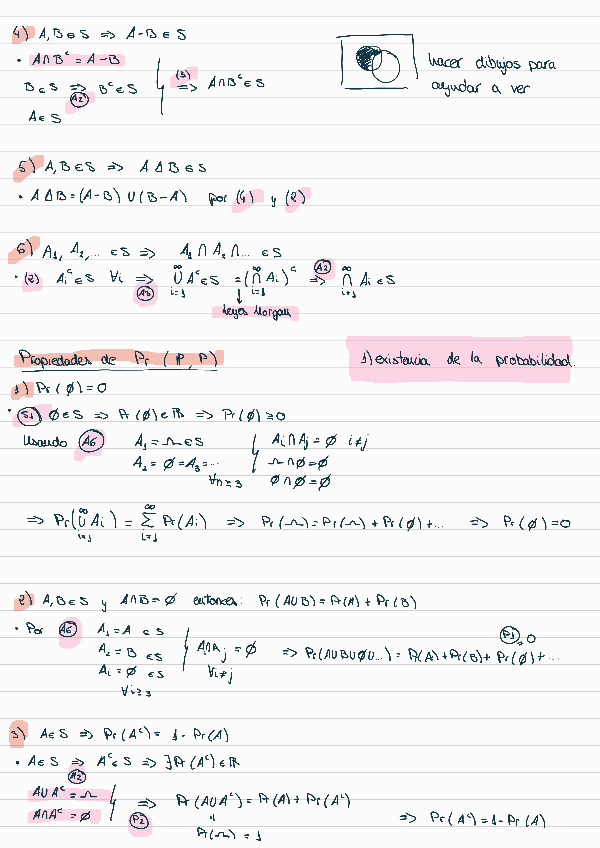 4) A, B ∈ S ⇒ A-B ∈ S
• A∩Bᶜ = A-B
B ∈ S ⇒ Bᶜ ∈ S (3) ⇒ A∩Bᶜ ∈ S
A2
A ∈ S
hacer dibujos para
ayudar a ver
5) A, B ∈ S ⇒ A Δ B ∈ S
• A Δ B = (A-B) ∪ (B-A) por (4) y (2)
6) A₁, A₂, ... ∈ S ⇒ A₁ ∩ A₂ ∩ ... ∈ S
• (2) Aᵢᶜ ∈ S ∀i ⇒ ∞∪i=1 Aᵢᶜ ∈ S = (∞∩i=1 Aᵢ)ᶜ A2 ⇒ ∞∩i=1 Aᵢ ∈ S
A3
Leyes Morgan
Propiedades de Pr (P, P)
1) existencia de la probabilidad.
1) Pr(∅) = 0
• S1 ∅ ∈ S ⇒ Pr(∅) ∈ ℝ ⇒ Pr(∅) ≥ 0
Usando A6 A₁ = Ω ∈ S Aᵢ∩Aⱼ = ∅ i≠j
A₂ = ∅ = A₃ = ... Ω∩∅ = ∅
∀n≥3 ∅∩∅ = ∅
⇒ Pr(∞∪i=1 Aᵢ) = ∞∑i=1 Pr(Aᵢ) ⇒ Pr(Ω) = Pr(Ω) + Pr(∅) + ... ⇒ Pr(∅) = 0
2) A, B ∈ S y A∩B = ∅ entonces: Pr(A∪B) = Pr(A) + Pr(B)
• Por A6 A₁ = A ∈ S
P1 = 0
A₂ = B ∈ S A∩Aⱼ = ∅ ⇒ Pr(A∪B∪∅∪...) = Pr(A) + Pr(B) + Pr(∅) + ...
Aᵢ = ∅ ∈ S ∀i≠j
∀i≥3
3) A ∈ S ⇒ Pr(Aᶜ) = 1 - Pr(A)
• A ∈ S ⇒ Aᶜ ∈ S ⇒ ∃Pr(Aᶜ) ∈ ℝ
A2
A∪Aᶜ = Ω ⇒ Pr(A∪Aᶜ) = Pr(A) + Pr(Aᶜ)
A∩Aᶜ = ∅ P2 " ⇒ Pr(Aᶜ) = 1 - Pr(A)
Pr(Ω) = 1